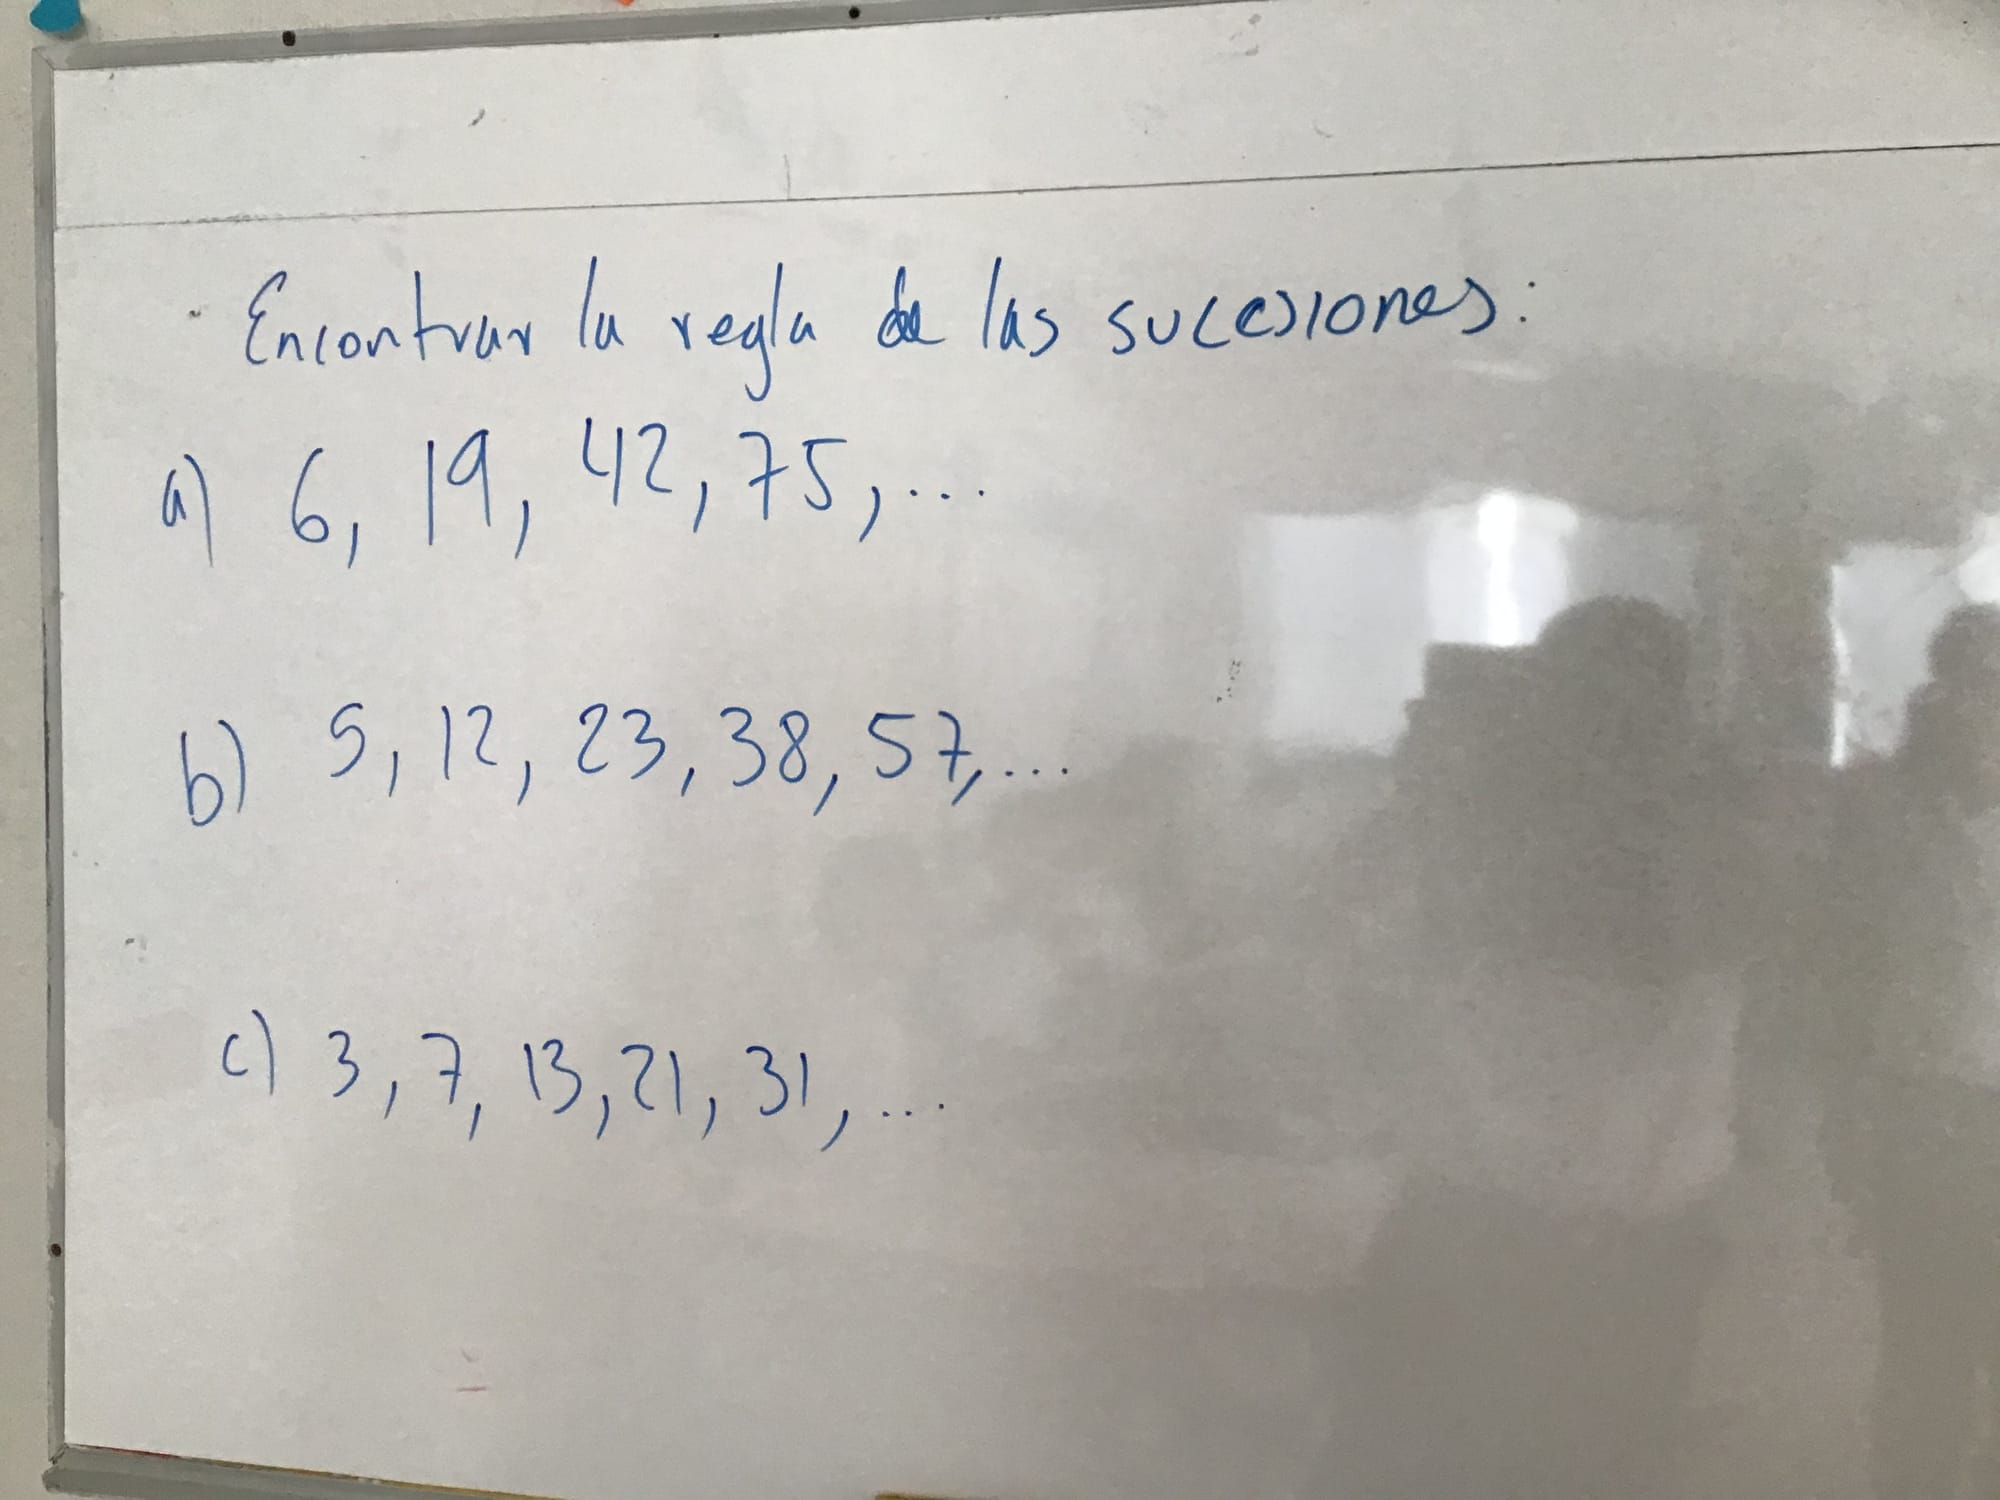 Encontrar la regla de las sucesiones:
a) 6, 19, 42, 75, ...
b) 5, 12, 23, 38, 57, ...
c) 3, 7, 13, 21, 31, ...